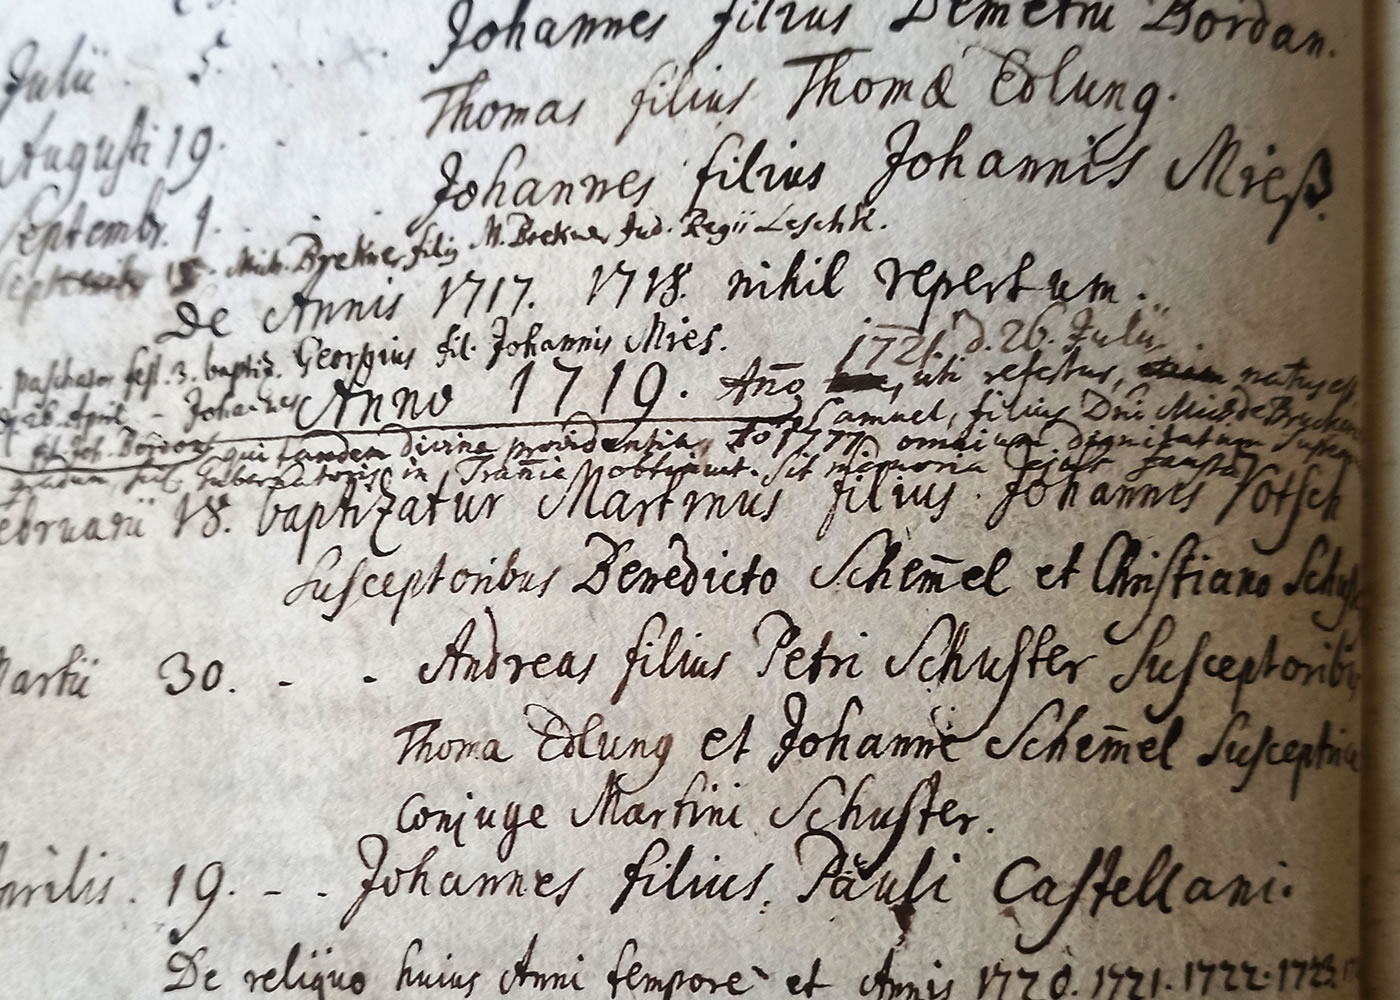 Johannes filius Demetrii Bordan.
Julii 5. Thomas filius Thomæ Edlung.
Augusti 19. Johannes filius Johannis Mieß.
Septembr. 1.
18. Mich. Brekner filig M. Brekner Jud. Regii Leschk.
De Annis 1717. 1718. nihil repertum.
paschator fest. 3. baptiz. Georgius fil. Johannis Mies. 1721. d. 26. Julii
26. April. - Johannes
Anno 1719. Año uti refertur, natus est
Joh. Bordan
Samuel, filius Dni Mich. de Brucken
qui tandem divina providentia, 1777 omnium dignitatum
gradum Gubernatoris in Trañia obtinuit. Sit memoria ejus fausta
ebruarii 18. baptizatur Martinus filius Johannis Votsch
Susceptoribus Benedicto Schem̄el et Christiano
artii 30. - - Andreas filius Petri Schuster Susceptorib
Thoma Edlung et Johanne Schem̄el
conjuge Martini Schuster.
prilis. 19. - . Johannes filius Pauli Castellani.
De reliquo huius Anni tempore et Annis 1720. 1721. 1722. 1723.